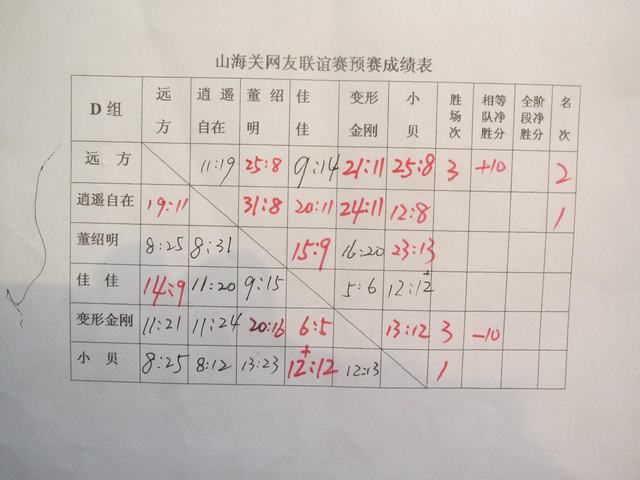 山海关网友联谊赛预赛成绩表
D组 远方 逍遥自在 董绍明 佳佳 变形金刚 小贝 胜场次 相等队净胜分 全阶段净胜分 名次
远方 11:19 25:8 9:14 21:11 25:8 3 +10 2
逍遥自在 19:11 31:8 20:11 24:11 12:8 1
董绍明 8:25 8:31 15:9 16:20 23:13
佳佳 14:9 11:20 9:15 5:6 12:12+
变形金刚 11:21 11:24 20:16 6:5 13:12 3 -10
小贝 8:25 8:12 13:23 12+:12 12:13 1